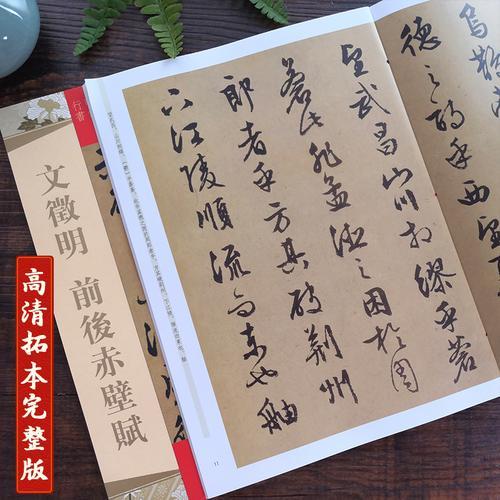 行書
文徵明 前後赤壁賦
高清拓本完整版
烏鵲
德之詩乎西望
望武昌山川相繆乎蒼
蒼此非孟德之困於周
郎者乎方其破荆州
下江陵順流而東也舳
11